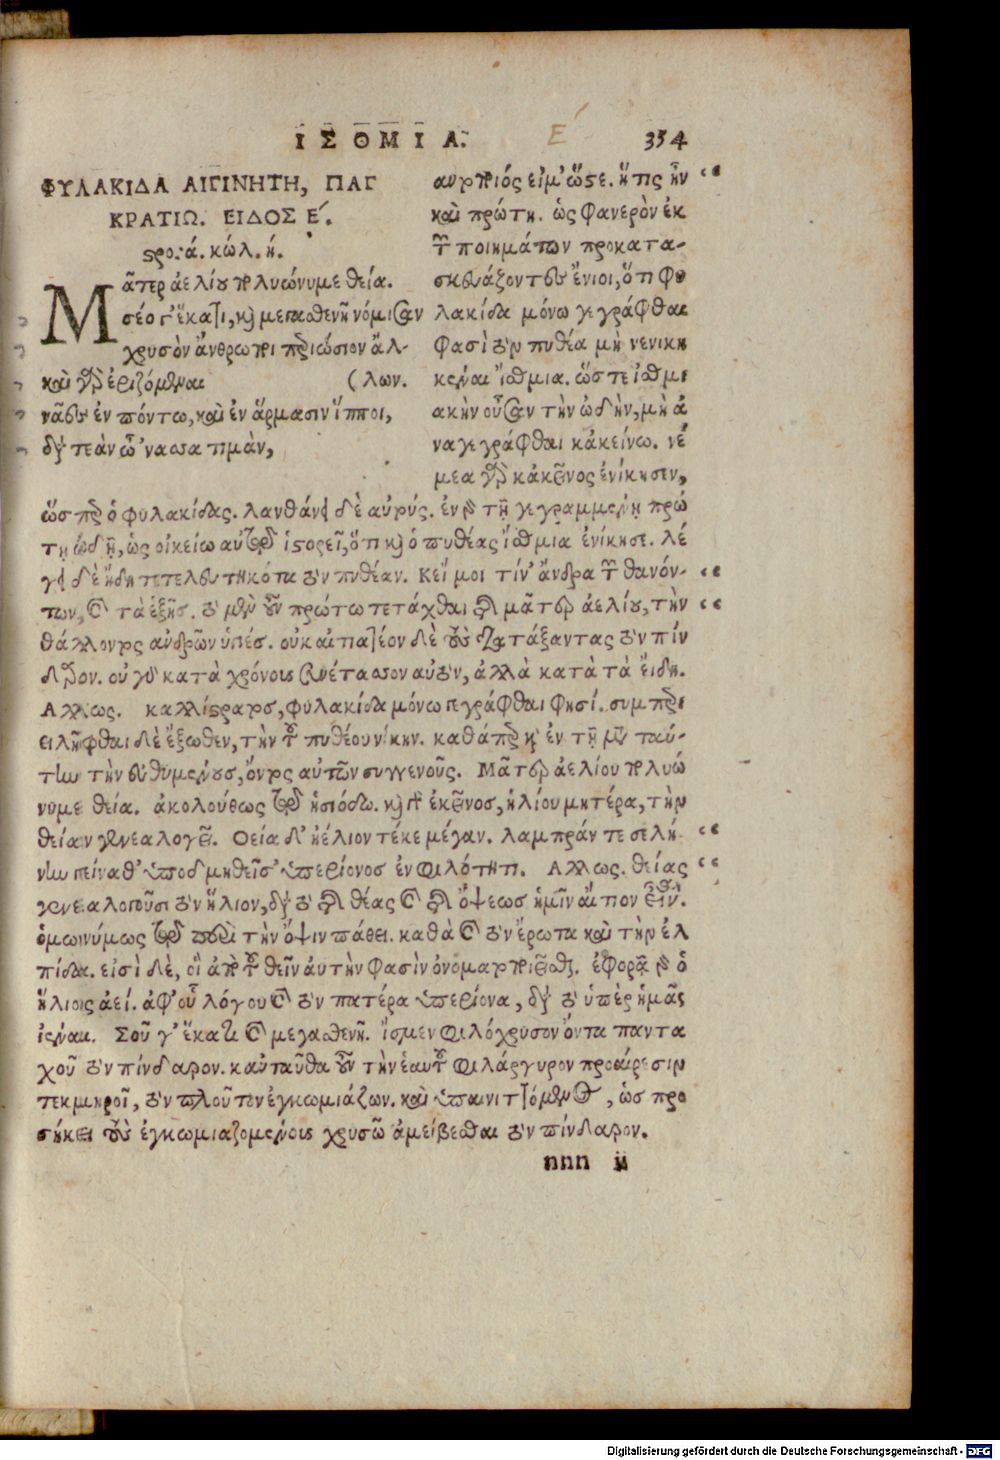 ΙΣΘΜΙΑ. Ε 354
ΦΥΛΑΚΙΔΑ ΑΙΓΙΝΗΤΗ, ΠΑΓ
ΚΡΑΤΙΩ. ΕΙΔΟΣ Ε΄.
στρο. ά. κώλ. ή.
Μᾶτερ ἀελίου πολυώνυμε θεία.
σέο γ' ἕκατι, καὶ μεγασθενῆ νόμισαν
χρυσὸν ἄνθρωποι περιώσιον ἄλ-
καὶ γὰρ ἐριζόμεναι (λων.
νᾶες ἐν πόντω, καὶ ἐν ἅρμασιν ἵπποι,
διὰ τεὰν ὦ 'νασσα τιμὰν,
ανδριαντοποιός εἰμ' ὥστε. ἥτις ἦν
καὶ πρώτη. ὡς φανερὸν ἐκ
τῶν ποιημάτων προκατα-
σκευάζοντες ἔνιοι, ὅτι φυ
λακίδα μόνω γεγράφθαι
φασὶ τὸν πυθέα μὴ νενικη
κέναι ἴσθμια. ὥστε ἰσθμι
ακὴν οὖσαν τὴν ὠδὴν, μὴ ἀ
ναγεγράφθαι κἀκείνω. νέ
μεα γὰρ κἀκεῖνος ἐνίκησεν,
ὥσπερ ὁ φυλακίδας. λανθάνει δὲ αὐτούς. ἐν γὰρ τῇ γεγραμμένῃ πρώ
τῃ ὠδῇ, ὡς οἰκείω αὐτοῦ ἱστορεῖ, ὅτι καὶ ὁ πυθέας ἴσθμια ἐνίκησε. λέ
γει δὲ ἤδη τετελευτηκότα τὸν πυθέαν. Κεῖμοι τίν' ἄνδρα τῶν θανόν-
των, καὶ τὰ ἑξῆς. τὸ μὲν οὖν πρώτω τετάχθαι τὸ μᾶτερ ἀελίου, τὴν
καλλίστρατος, φυλακίδα μόνω γεγράφθαι φησί. συμπερι
ειλῆφθαι δὲ ἔξωθεν, τὴν τοῦ πυθέου νίκην. καθάπερ καὶ ἐν τῇ μετὰ ταύ-
την τὴν εὐθυμένους, ὄντος αὐτῶν συγγενοῦς. Μᾶτερ ἀελίου πολυώ
νυμε θεία. ἀκολούθως τῷ ἡσιόδω. καὶ γὰρ ἐκεῖνος, ἡλίου μητέρα, τὴν
θείαν γενεαλογεῖ. Θεία δ' ἠέλιον τέκε μέγαν. λαμπράν τε σελή-
νην γείναθ' ὑποδμηθεῖσ' ὑπερίονος ἐν φιλότητι. Αλλως. θείας
γενεαλογοῦσι τὸν ἥλιον, διὰ τὸ τῆς θέας καὶ τῆς ὄψεως ἡμῖν αἴτιον εἶναι.
ὁμωνύμως τῷ περὶ τὴν ὄψιν πάθει. καθὰ καὶ τὸν ἔρωτα καὶ τὴν ἐλ
πίδα. εἰσὶ δὲ, οἳ ἀπὸ τοῦ θεῖν αὐτὴν φασὶν ὀνοματοποιεῖσθαι. ἐφορᾷ γὰρ ὁ
ἥλιος ἀεί. ἀφ' οὗ λόγου καὶ τὸν πατέρα ὑπερίονα, διὰ τὸ ὑπὲρ ἡμᾶς
ἰέναι. Σοῦ γ' ἕκατι καὶ μεγασθενῆ. ἴσμεν φιλόχρυσον ὄντα παντα
χοῦ τὸν πίνδαρον. κἀνταῦθα οὖν τὴν ἑαυτοῦ φιλάργυρον προαίρεσιν
τεκμηροῖ, τὸν πλοῦτον ἐγκωμιάζων. καὶ ὑπαινιττόμενος, ὡς προ
σήκει τοὺς ἐγκωμιαζομένους χρυσῶ ἀμείβεσθαι τὸν πίνδαρον.
nnn ii
Digitalisierung gefördert durch die Deutsche Forschungsgemeinschaft - DFG